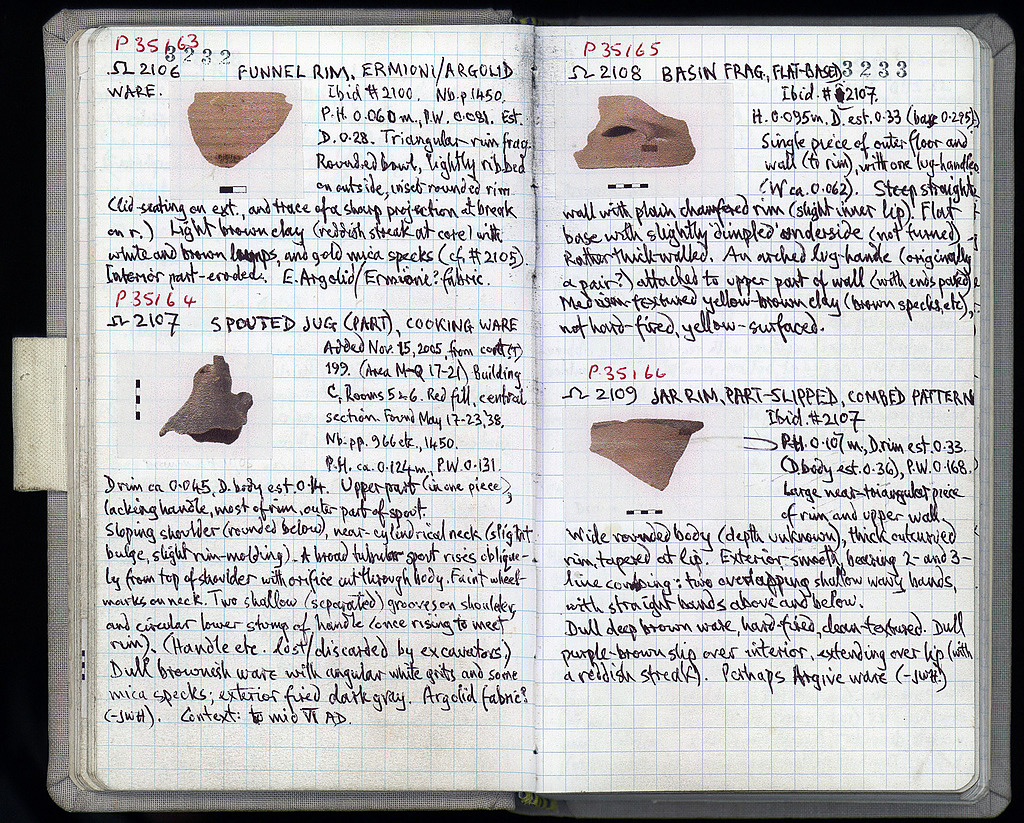 P 35163
3232
Ω 2106 FUNNEL RIM, ERMIONI/ARGOLID
WARE. Ibid # 2100. Nb.p.1450.
P.H. 0.060 m., P.W. 0.081. Est.
D. 0.28. Triangular rim frag.
Rounded bowl, lightly ribbed
on outside, inset rounded rim
(lid-seating on ext., and trace of a sharp projection at break
on r.) Light brown clay (reddish streak at core) with
white and brown lumps, and gold mica specks (cf. # 2105).
Interior part-eroded. E. Argolid/Ermione? fabric.
P 35164
Ω 2107 SPOUTED JUG (PART), COOKING WARE
Added Nov. 15, 2005, from cont(T)
199. (Area M-Q 17-21) Building
C, Rooms 5 & 6. Red fill, central
section. Found May 17-23, '38.
Nb. pp. 966 etc., 1450.
P.H. ca. 0.124 m., P.W. 0.131.
D rim ca 0.045, D. body est. 0.14. Upper part (in one piece),
lacking handle, most of rim, outer part of spout.
Sloping shoulder (rounded below), near-cylindrical neck (slight
bulge, slight rim-molding). A broad tubular spout rises oblique-
ly from top of shoulder with orifice cut through body. Faint wheel-
marks on neck. Two shallow (separated) grooves on shoulder,
and circular lower stump of handle (once rising to meet
rim). (Handle etc. lost/discarded by excavators)
Dull brownish ware with angular white grits and some
mica specks; exterior fired dark gray. Argolid fabric?
(-JWH). Context: to mid VI AD.
P 35165
Ω 2108 BASIN FRAG, FLAT-BASED 3233
Ibid. # 2107.
H. 0.095m, D. est. 0.33 (base 0.295)
Single piece of outer floor and
wall (to rim), with one lug-handle
(W ca. 0.062). Steep straight
wall with plain chamfered rim (slight inner lip). Flat
base with slightly dimpled underside (not turned).
Rather thick-walled. An arched lug-handle (originally
a pair?) attached to upper part of wall (with ends pared)
Medium-textured yellow-brown clay (brown specks, etc),
not hard-fired, yellow-surfaced.
P 35166
Ω 2109 JAR RIM, PART-SLIPPED, COMBED PATTERN
Ibid. # 2107
P.H. 0.107 m, D rim est. 0.33.
(D body est. 0.36), P.W. 0.168.
Large near-triangular piece
of rim and upper wall
Wide rounded body (depth unknown), thick outcurved
rim, tapered at lip. Exterior smooth, bearing 2- and 3-
line combing: two overlapping shallow wavy bands,
with straight bands above and below.
Dull deep brown ware, hard-fired, clean-textured. Dull
purple-brown slip over interior, extending over lip (with
a reddish streak). Perhaps Argive ware (-JWH)